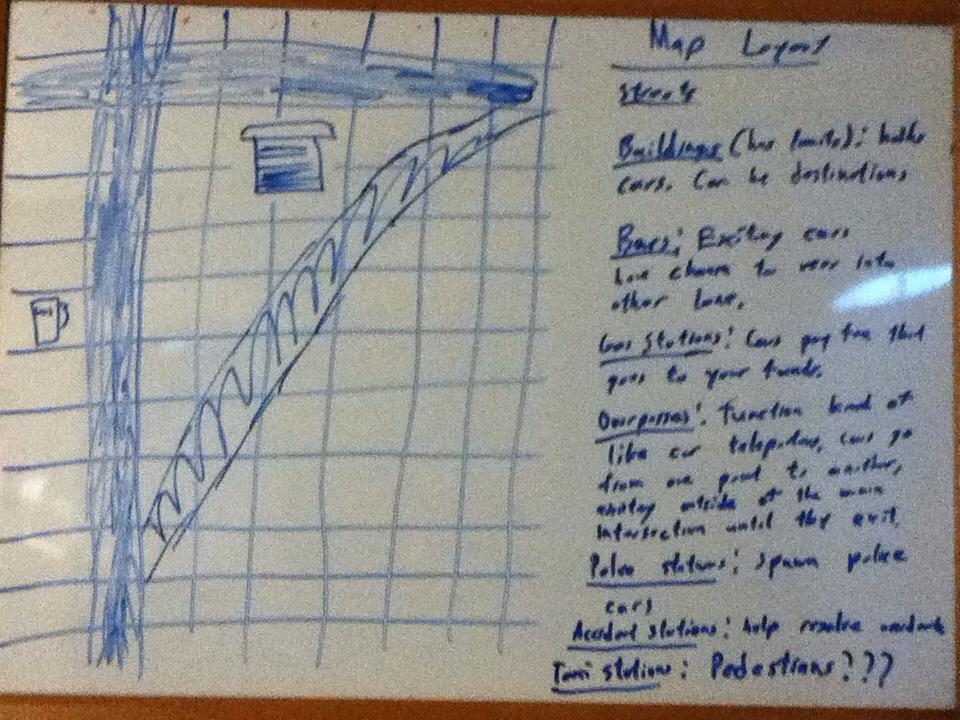 Map Layout
Streets
Buildings (has limits): holds
cars. Can be destinations
Bars: Exiting cars
have chance to veer into
other lane.
Gas Stations: Cars pay fee that
goes to your funds.
Overpasses: Function kind of
like car teleporters, cars go
from one point to another,
existing outside of the main
intersection until they exit.
Police stations: Spawn police
cars
Accident stations: help resolve accidents
Taxi stations: Pedestrians???